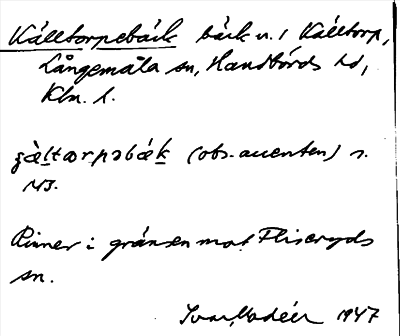 Källtorpebäck bäck n. i Källtorp,
Långemåla sn, Handbörds hd,
Klm. l.
(obs. accenten) s.
143.
Rinner i gränsen mot Fliseryds
sn.
Ivar Modéer 1947